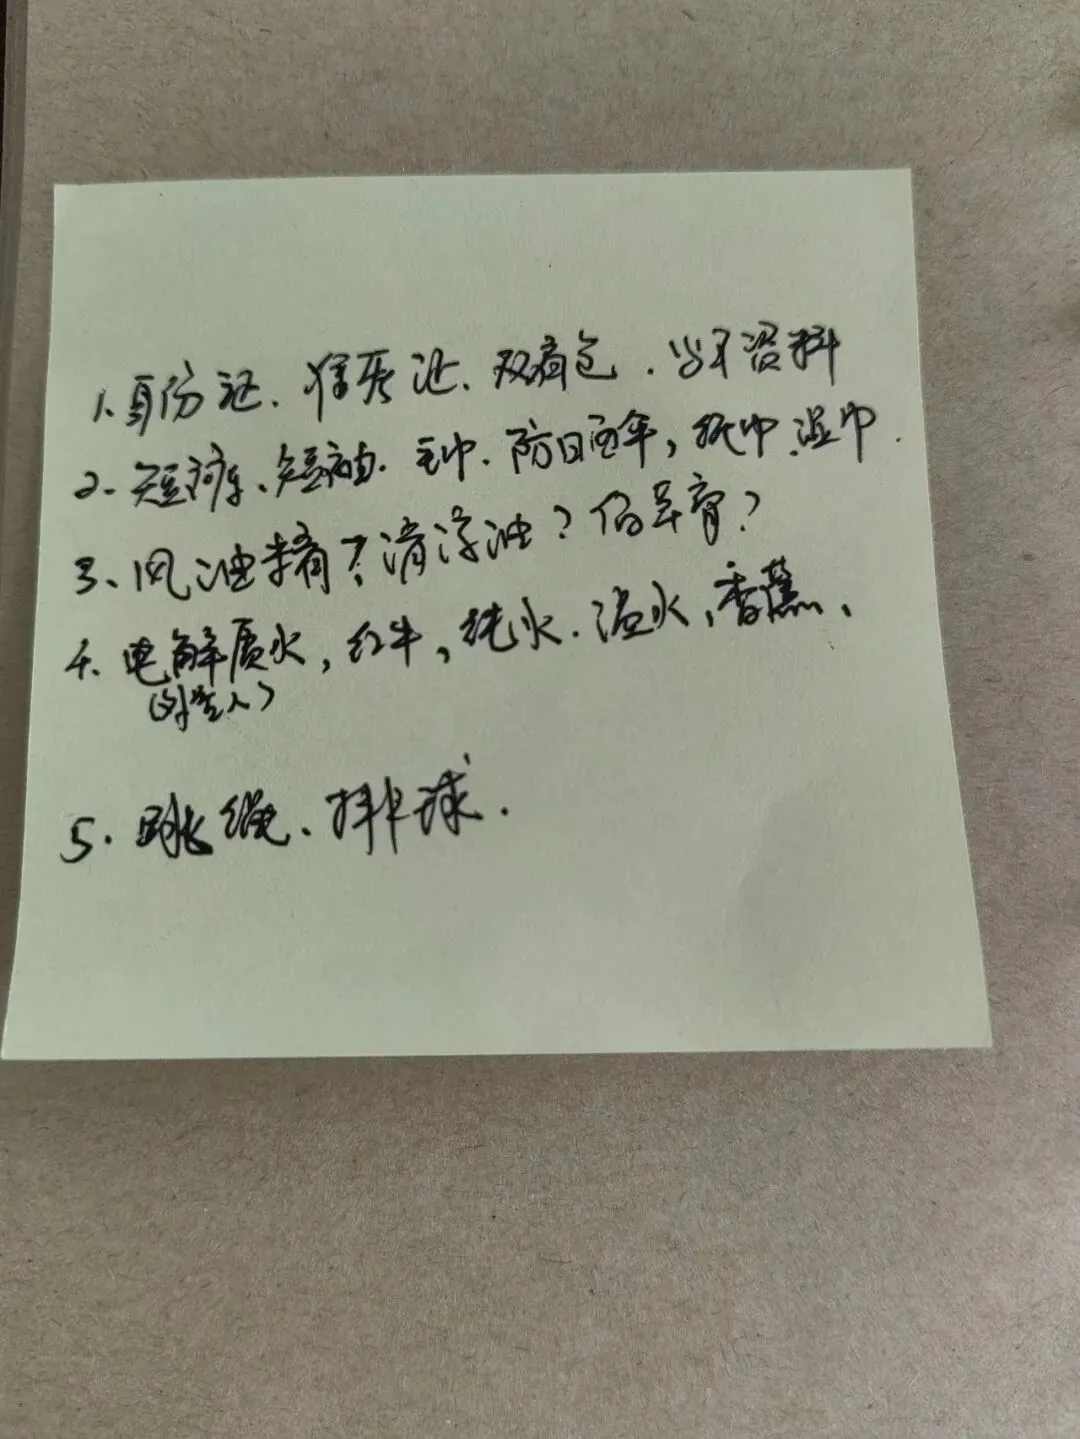 1. 身份证、准考证、双肩包.学习资料
2. 短裤、短袖.毛巾.防日雨伞,纸巾.湿巾.
3、风油精?清凉油?白草膏?
4. 电解质水,红牛,纯水.温水,香蕉、
(外星人)
5. 跳绳、排球.